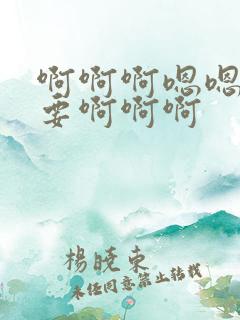 啊啊啊嗯嗯
要啊啊啊
楊晓东
未经同意禁止转载